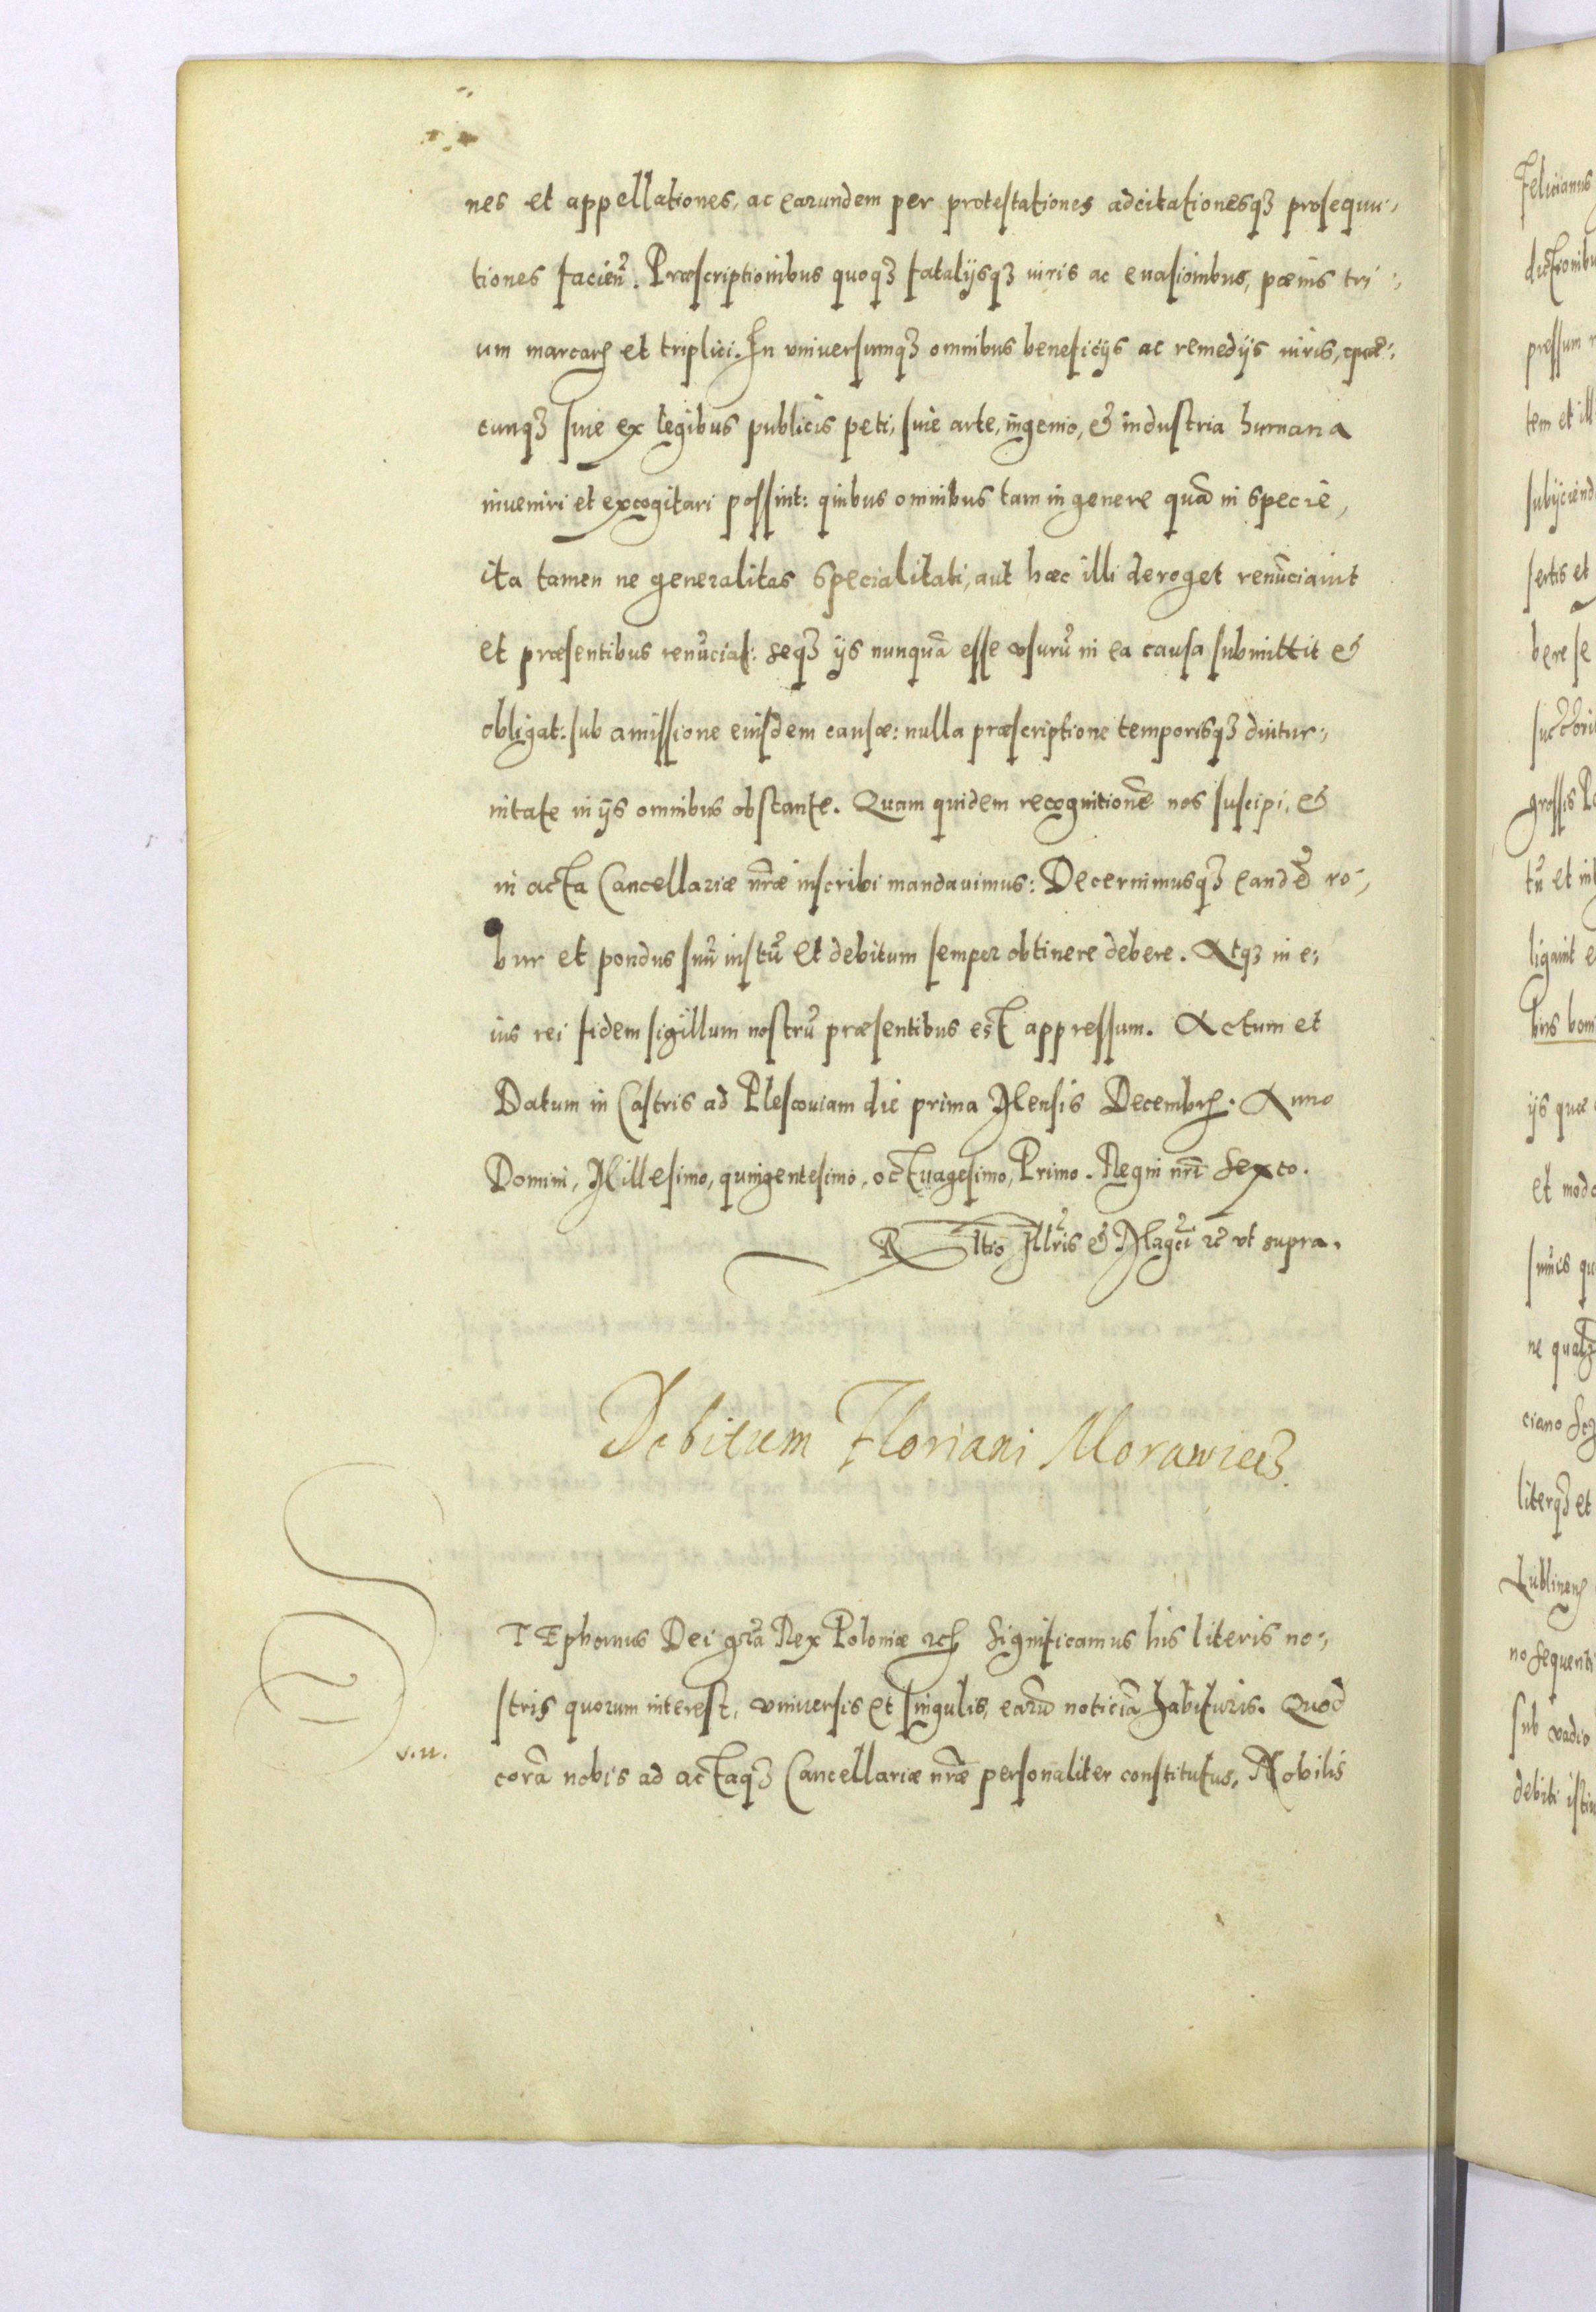 nes et appellationes, ac earundem per protestationes adcitationesqȝ prosequu-
tiones facien̄. Præscriptionibus quoqȝ fatalijsqȝ iuris ac euasionibus, pœnis tri-
um marcarȝ et triplici. In vniuersumqȝ omnibus beneficijs ac remedijs iuris, quæ-
cunqȝ siue ex legibus publicis peti, siue arte, ingenio, & industria humana
inueniri et excogitari possint: quibus omnibus tam in genere quā in specie,
ita tamen ne generalitas specialitati, aut hæc illi deroget renūciauit
et præsentibus renūciat: seqȝ ijs nunquā esse vsurū in ea causa submittit &
obligat: sub amissione eiusdem causæ: nulla præscriptione temporisqȝ diutur-
nitate in ijs omnibus obstante. Quam quidem recognitionē nos suscipi, &
in acta Cancellariæ nr̄æ inscribi mandauimus: Decernimusqȝ eandē ro-
bur et pondus suū iustū et debitum semper obtinere debere. Atqȝ in e-
ius rei fidem sigillum nostrū præsentibus est appressum. Actum et
Datum in Castris ad Plescouiam die prima Mensis Decembrȝ. Anno
Domini, Millesimo, quingentesimo, octuagesimo, Primo. Regni nr̄i Sexto.
Rltio Illrīs & Magcī ꝛc̄ vt supra.
Debitum Floriani Morawiecȝ
S
v. n.
TEphanus Dei gr̄a Rex Poloniæ ꝛcȝ Significamus his literis no-
stris quorum interest, vniuersis et singulis, earū noticiā habituris. Quod
corā nobis ad actaqȝ Cancellariæ nr̄æ personaliter constitutus, Nobilis
Felicianus
pressum
tem et ill
sertis et
bere se
grossis
tū et
ijs quæ
et modo
ciano
et
no sequenti
sub vadio
debiti